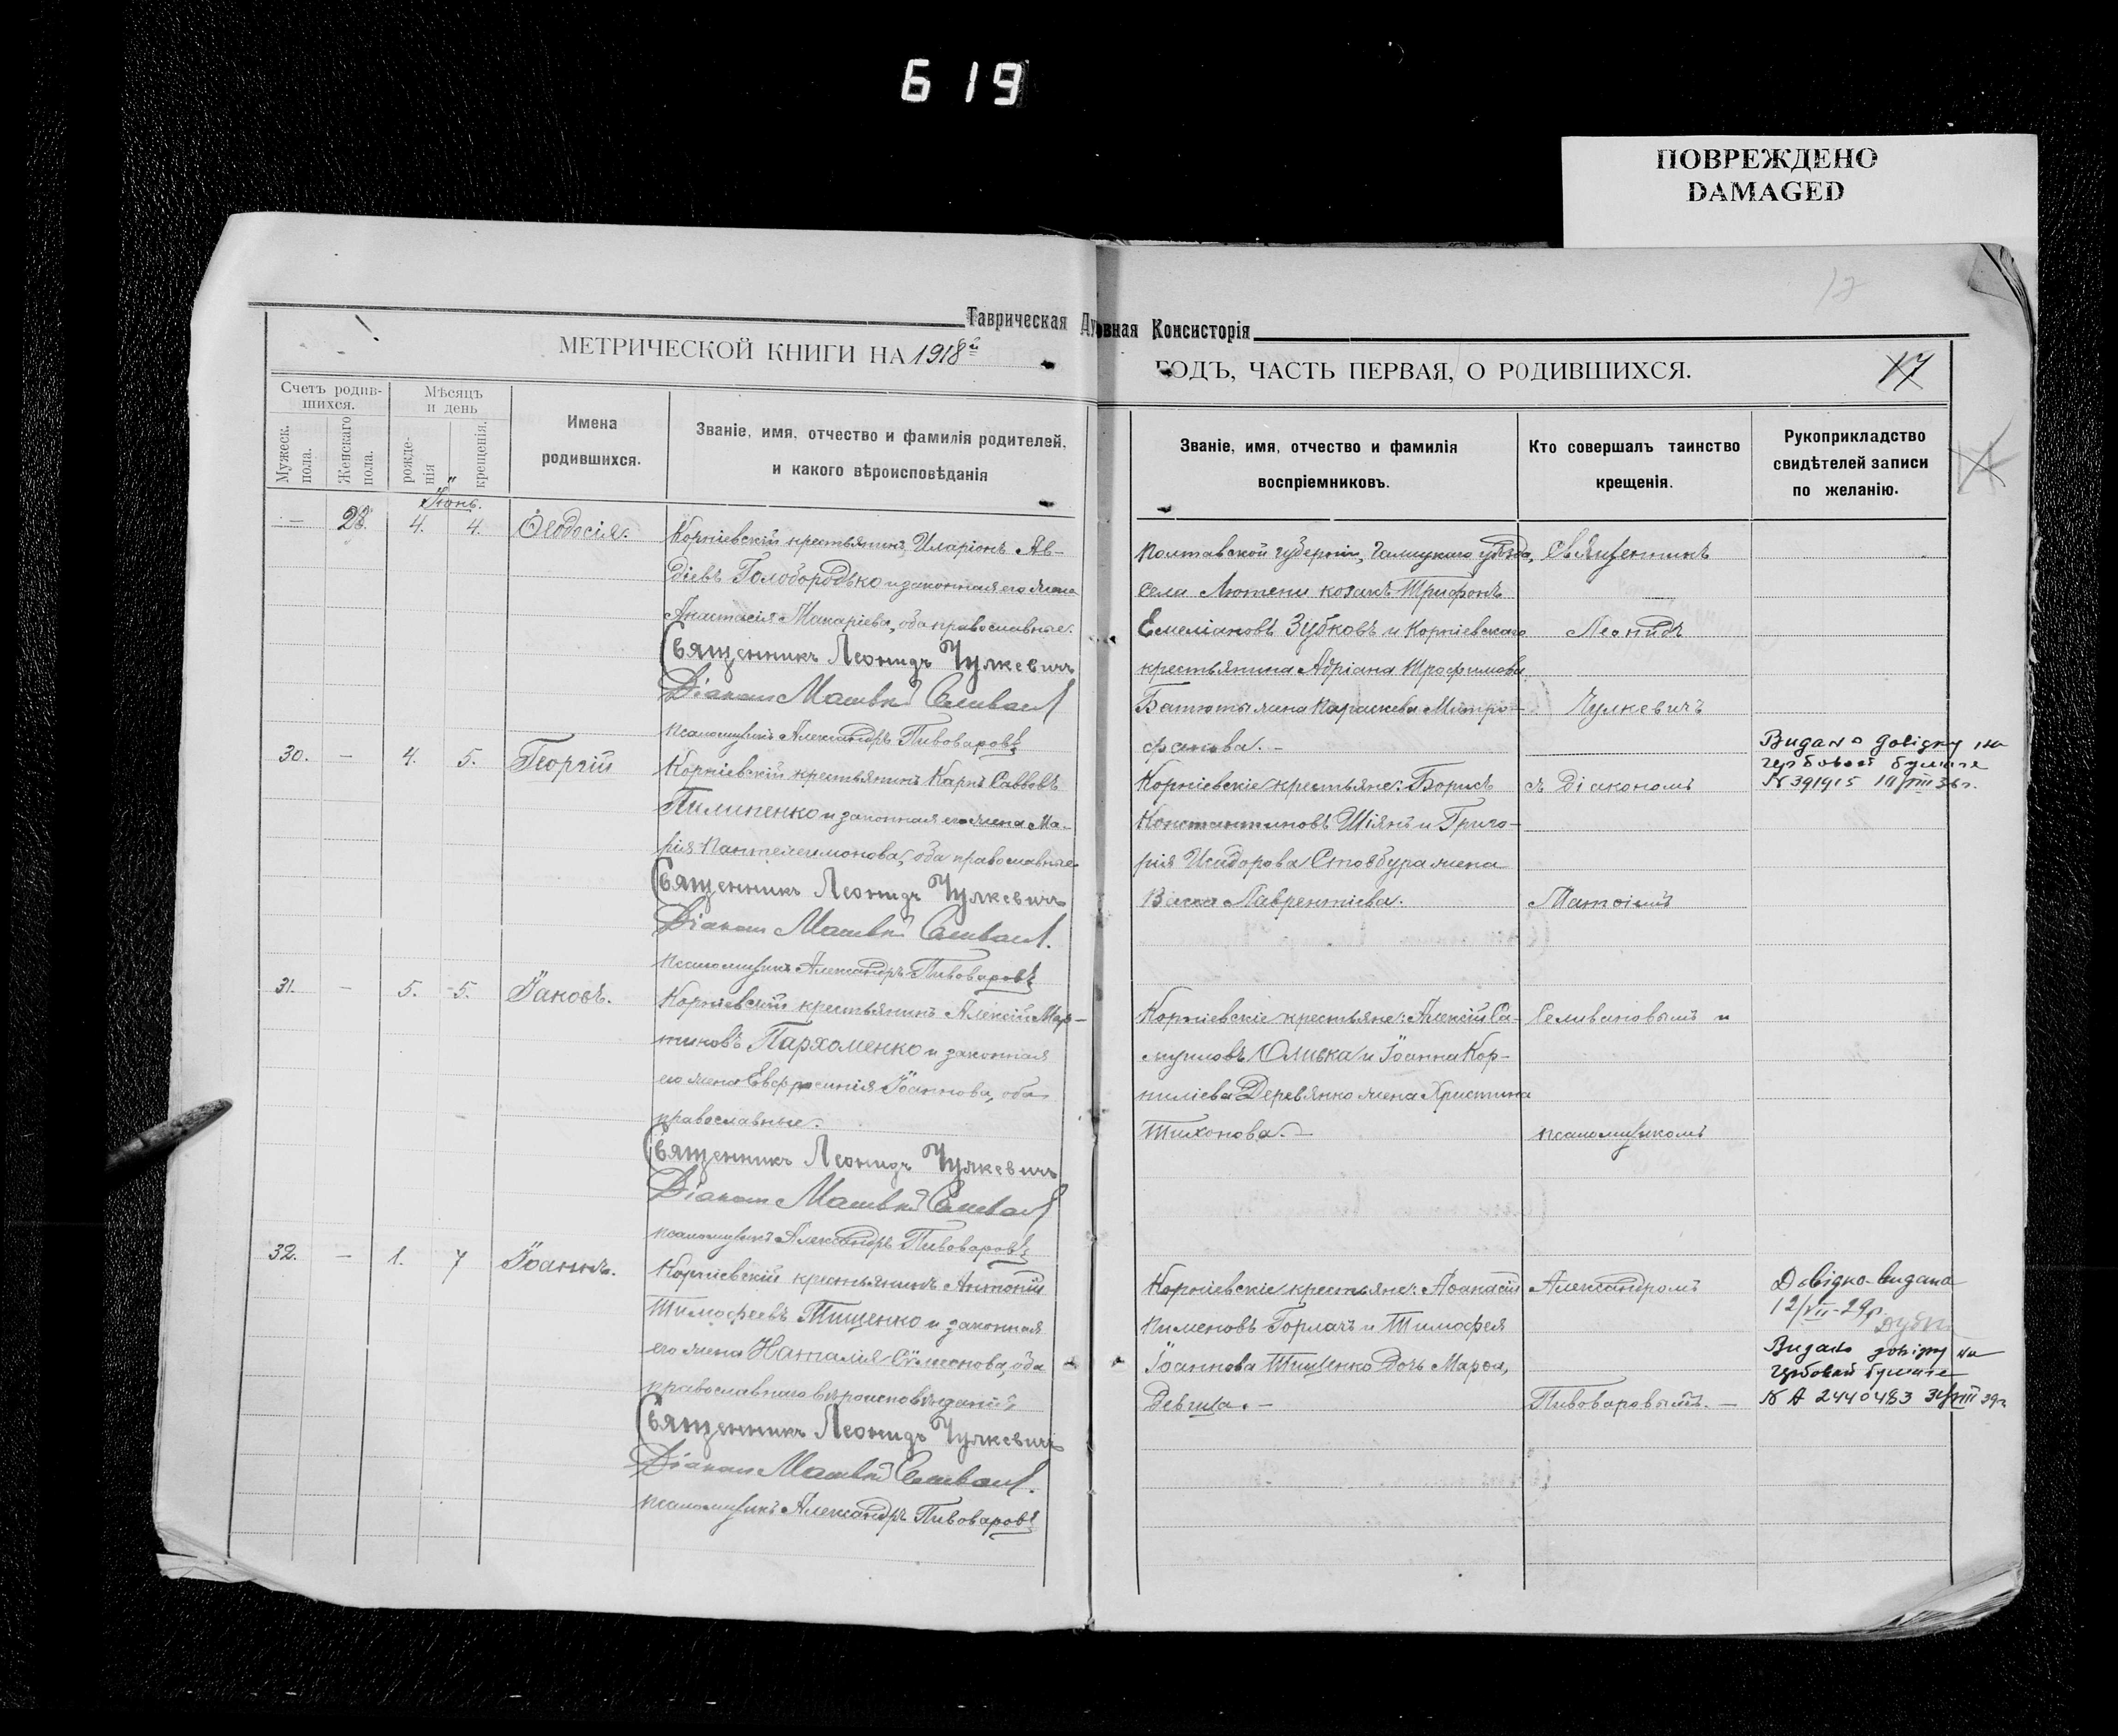 619
ПОВРЕЖДЕНО
DAMAGED
Таврическая Духовная Консисторія
МЕТРИЧЕСКОЙ КНИГИ НА 1918й
ГОДЪ, ЧАСТЬ ПЕРВАЯ, О РОДИВШИХСЯ.
17
Счетъ родив-
шихся.
Мужеск.
пола.
Женскаго
пола.
Мѣсяцъ
и день
рожде-
нія
крещенія.
Имена
родившихся.
Званіе, имя, отчество и фамилія родителей,
и какого вѣроисповѣданія
Званіе, имя, отчество и фамилія
воспріемниковъ.
Кто совершалъ таинство
крещенія.
Рукоприкладство
свидѣтелей записи
по желанію.
Іюнь.
— 28. 4. 4. Ѳеодосія.
Корніевскій крестьянинъ Иларіонъ Ав-
діевъ Голобородько и законная его жена
Анастасія Макаріева, оба православные.
Священникъ Леонидъ Чулкевичъ
Діаконъ Матвѣй Селиванов
Псаломщикъ Александръ Пивоваровъ
Полтавской губерніи, уѣзда,
села Лютени козакъ Трифонъ
Емеліановъ Зубковъ и Корніевскаго
крестьянина Адріана Трофимова
Батюты жена Параскева Митро-
фанова. —
Священникъ
Леонидъ
Чулкевичъ
30. — 4. 5. Георгій
Корніевскій крестьянинъ Карпъ Саввовъ
Пилипенко и законная его жена Ма-
рія Пантелеимонова, оба православные
Священникъ Леонидъ Чулкевичъ
Діаконъ Матвѣй Селиванов.
Псаломщикъ Александръ Пивоваровъ
Корніевскіе крестьяне: Борисъ
Константиновъ Шіянъ и Григо-
рія Исидорова Стовбура жена
Васса Лаврентіева.
съ Діакономъ
Матѳіемъ
Видано довідку на
гербовой бумаге
N 391915
31. — 5. 5. Іаковъ.
Корніевскій крестьянинъ Алексій Мар-
тиновъ Пархоменко и законная
его жена Евфросинія Іоаннова, оба
православные.
Священникъ Леонидъ Чулкевичъ
Діаконъ Матвѣй Селиванов
Псаломщикъ Александръ Пивоваровъ
Корніевскіе крестьяне: Алексій Са-
муиловъ и Іоанна Кор-
ниліева Деревянко жена Христина
Тихонова. —
Селивановымъ и
псаломщикомъ
32. — 1. 7 Іоаннъ.
Корніевскій крестьянинъ Антоній
Тимоѳеевъ Тищенко и законная
его жена Наталія Сѵмеонова, оба
православнаго вѣроисповѣданія
Священникъ Леонидъ Чулкевичъ
Діаконъ Матвѣй Селиванов.
Псаломщикъ Александръ Пивоваровъ
Корніевскіе крестьяне: Аѳанасій
Пименовъ Горлачъ и Тимоѳея
Іоаннова Тищенко дочь Марѳа,
девица. —
Александромъ
Пивоваровымъ. —
Довідка видана
12/VII-29р.
Видано довідку на
гербовой бумаге
N А 2440483 VIII 39г